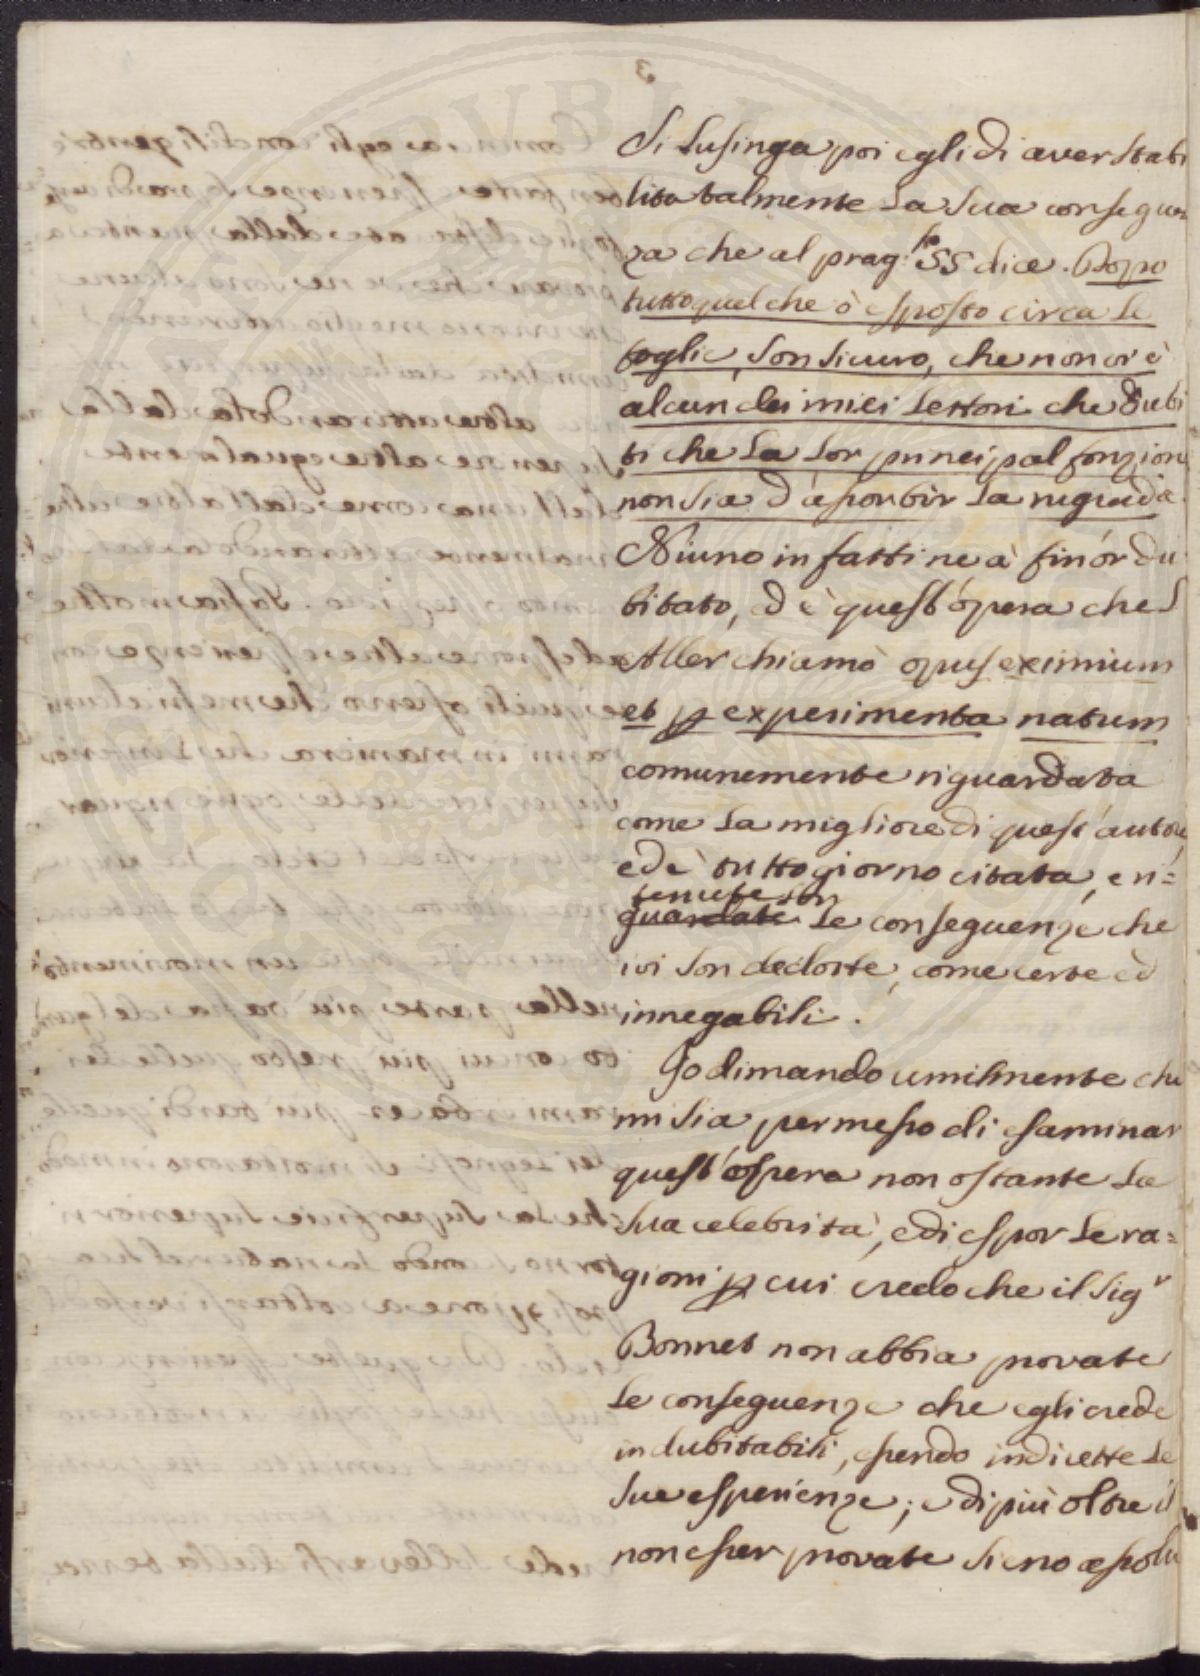 3
Si lusinga poi egli di aver stabi
lita talmente la sua conseguen
za che al prag.fo 55 dice. Dopo
tutto quel che ò esposto circa le
foglie, son sicuro, che non vi è
alcun dei miei lettori che dubi
ti che la lor principal fonzione
non sia d'assorbir la rugiada.
Niuno in fatti ne à fin'or du
bitato, ed è quest'opera che l'
Aller chiamò opus eximium
et per experimenta natum
comunemente riguardata
come la migliore di quest'autore
ed è tutto giorno citata, e ri=
tenute son
guardate le conseguenze che
ivi son dedotte, come certe ed
innegabili.
Io dimando umilmente che
mi sia permesso di esaminar
quest'opera non ostante la
sua celebrità, e di espor le ra=
gioni per cui credo che il Sigr
Bonnet non abbia provate
le conseguenze che egli crede
indubitabili, essendo indirette le
sue esperienze; e di più oltre il
non esser provate sieno assolu